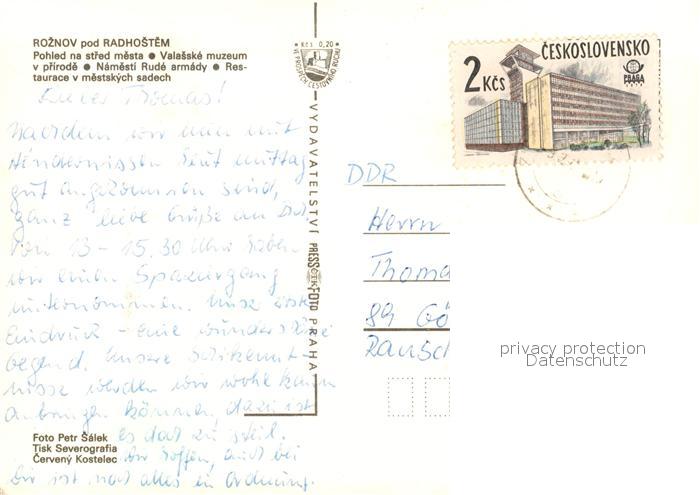 ROŽNOV pod RADHOŠTĚM
Pohled na střed města ● Valašské muzeum
v přírodě ● Náměstí Rudé armády ● Res-
taurace v městských sadech
Kčs 0,20
VE PROSPĚCH CESTOVNÍHO RUCHU
Lieber Thomas!
Nachdem wir nun mit
Hindernissen heut mittag
gut angekommen sind,
ganz liebe Grüße an Dich.
Von 13 - 15.30 Uhr haben
wir einen Spaziergang
unternommen. Unser erster
Eindruck - eine wunderschöne
Gegend. Unsere Schikennt-
nisse werden wir wohl kaum
anbringen können, dazu ist
es dort zu steil.
Wir hoffen, auch bei
Dir ist noch alles in Ordnung.
Foto Petr Šálek
Tisk Severografia
Červený Kostelec
VYDAVATELSTVÍ PRESSFOTO PRAHA
ČTK
ČESKOSLOVENSKO
2 Kčs
PRAGA
DDR
Herrn
Thoma
89 Gö
Rausch
privacy protection
Datenschutz